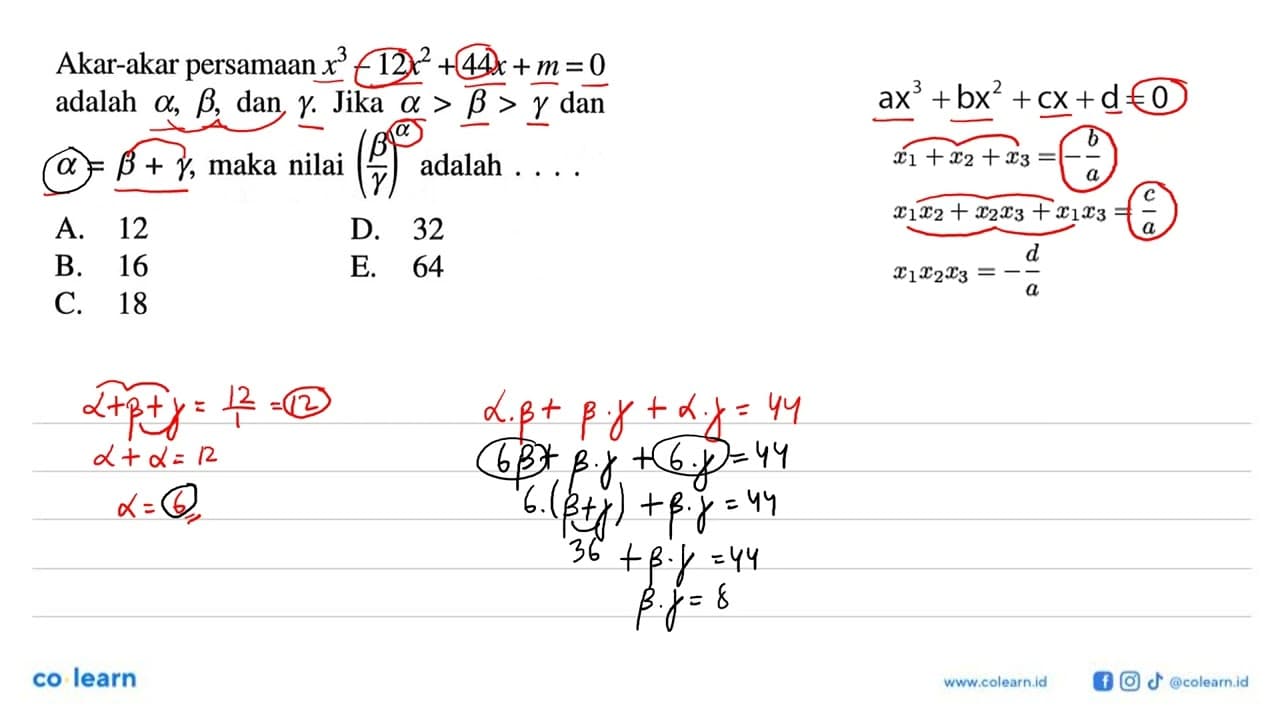 Akar-akar persamaan x³ - 12x² + 44x + m = 0
adalah α, β, dan γ. Jika α > β > γ dan
α = β + γ, maka nilai (β/γ)^α adalah . . . .
A. 12 D. 32
B. 16 E. 64
C. 18
ax³ + bx² + cx + d = 0
x₁ + x₂ + x₃ = -b/a
x₁x₂ + x₂x₃ + x₁x₃ = c/a
x₁x₂x₃ = -d/a
α+β+γ = 12/1 = 12
α + α = 12
α = 6
α.β + β.γ + α.γ = 44
6β + β.γ + 6.γ = 44
6.(β+γ) + β.γ = 44
36 + β.γ = 44
β.γ = 8
co learn
www.colearn.id
@colearn.id